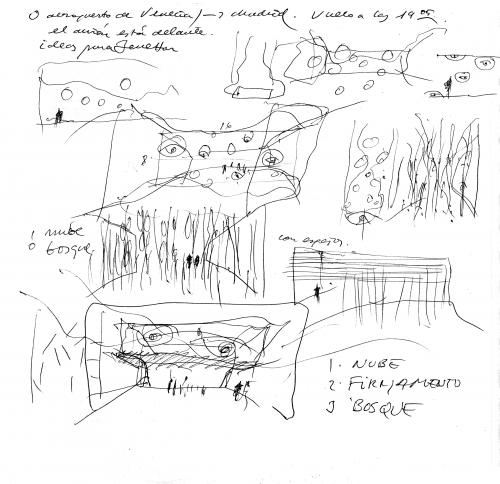 aeropuerto de Venecia / → Madrid. Vuelo a las 19 05
el avión está delante.
ideas para
16
8
1 NUBE
0 bosque.
con espejos.
1. NUBE
2. FIRMAMENTO
3 BOSQUE